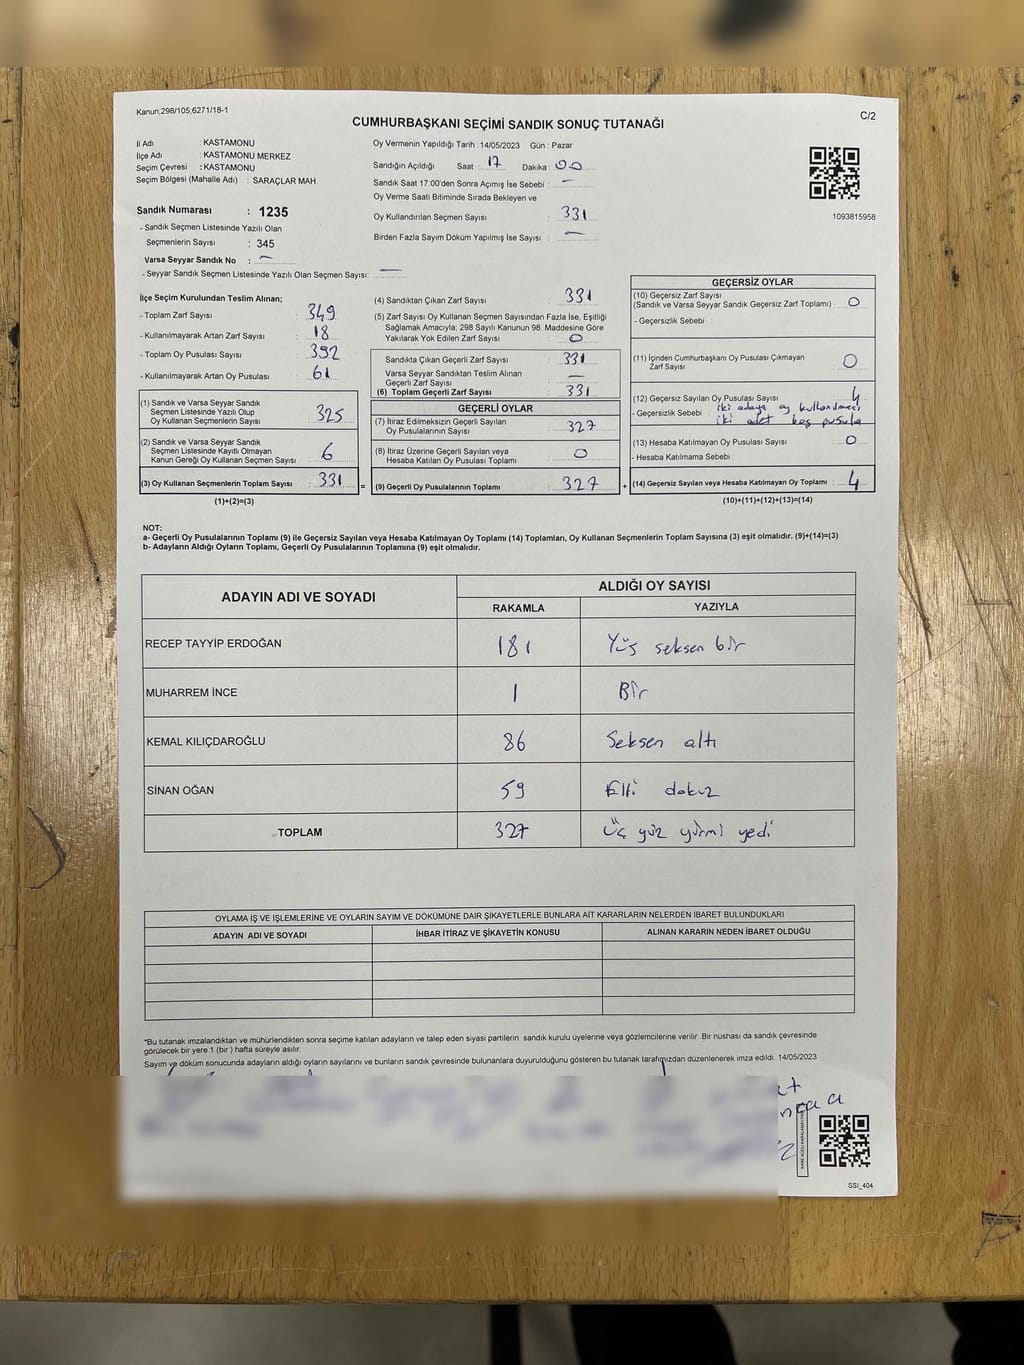 Kanun;298/105;6271/18-1
C/2
CUMHURBAŞKANI SEÇİMİ SANDIK SONUÇ TUTANAĞI
İl Adı : KASTAMONU
İlçe Adı : KASTAMONU MERKEZ
Seçim Çevresi : KASTAMONU
Seçim Bölgesi (Mahalle Adı) : SARAÇLAR MAH.
Sandık Numarası : 1235
- Sandık Seçmen Listesinde Yazılı Olan
Seçmenlerin Sayısı : 345
Varsa Seyyar Sandık No : -
- Seyyar Sandık Seçmen Listesinde Yazılı Olan Seçmen Sayısı: -
Oy Vermenin Yapıldığı Tarih : 14/05/2023 Gün : Pazar
Sandığın Açıldığı Saat : 17 Dakika : 00
Sandık Saat 17:00'den Sonra Açımış İse Sebebi : -
Oy Verme Saati Bitiminde Sırada Bekleyen ve
Oy Kullandırılan Seçmen Sayısı : 331
Birden Fazla Sayım Döküm Yapılmış İse Sayısı : -
1093815958
İlçe Seçim Kurulundan Teslim Alınan;
- Toplam Zarf Sayısı : 349
- Kullanılmayarak Artan Zarf Sayısı : 18
- Toplam Oy Pusulası Sayısı : 392
- Kullanılmayarak Artan Oy Pusulası : 61
(1) Sandık ve Varsa Seyyar Sandık
Seçmen Listesinde Yazılı Olup
Oy Kullanan Seçmenlerin Sayısı : 325
(2) Sandık ve Varsa Seyyar Sandık
Seçmen Listesinde Kayıtlı Olmayan
Kanun Gereği Oy Kullanan Seçmen Sayısı : 6
(3) Oy Kullanan Seçmenlerin Toplam Sayısı : 331
(1)+(2)=(3)
(4) Sandıktan Çıkan Zarf Sayısı : 331
(5) Zarf Sayısı Oy Kullanan Seçmen Sayısından Fazla İse, Eşitliği
Sağlamak Amacıyla; 298 Sayılı Kanunun 98. Maddesine Göre
Yakılarak Yok Edilen Zarf Sayısı : 0
Sandıkta Çıkan Geçerli Zarf Sayısı : 331
Varsa Seyyar Sandıktan Teslim Alınan
Geçerli Zarf Sayısı : -
(6) Toplam Geçerli Zarf Sayısı : 331
GEÇERLİ OYLAR
(7) İtiraz Edilmeksizin Geçerli Sayılan
Oy Pusulalarının Sayısı : 327
(8) İtiraz Üzerine Geçerli Sayılan veya
Hesaba Katılan Oy Pusulası Toplamı : 0
= (9) Geçerli Oy Pusulalarının Toplamı : 327
GEÇERSİZ OYLAR
(10) Geçersiz Zarf Sayısı
(Sandık ve Varsa Seyyar Sandık Geçersiz Zarf Toplamı) : 0
- Geçersizlik Sebebi :
(11) İçinden Cumhurbaşkanı Oy Pusulası Çıkmayan
Zarf Sayısı : 0
(12) Geçersiz Sayılan Oy Pusulası Sayısı : 4
- Geçersizlik Sebebi : iki adaya oy
iki adet boş pusula
(13) Hesaba Katılmayan Oy Pusulası Sayısı : 0
- Hesaba Katılmama Sebebi :
+ (14) Geçersiz Sayılan veya Hesaba Katılmayan Oy Toplamı : 4
(10)+(11)+(12)+(13)=(14)
NOT:
a- Geçerli Oy Pusulalarının Toplamı (9) ile Geçersiz Sayılan veya Hesaba Katılmayan Oy Toplamı (14) Toplamları, Oy Kullanan Seçmenlerin Toplam Sayısına (3) eşit olmalıdır. (9)+(14)=(3)
b- Adayların Aldığı Oyların Toplamı, Geçerli Oy Pusulalarının Toplamına (9) eşit olmalıdır.
ADAYIN ADI VE SOYADI ALDIĞI OY SAYISI
RAKAMLA YAZIYLA
RECEP TAYYİP ERDOĞAN 181 Yüz seksen bir
MUHARREM İNCE 1 Bir
KEMAL KILIÇDAROĞLU 86 Seksen altı
SİNAN OĞAN 59 Elli dokuz
TOPLAM 327 Üç yüz yirmi yedi
OYLAMA İŞ VE İŞLEMLERİNE VE OYLARIN SAYIM VE DÖKÜMÜNE DAİR ŞİKAYETLERLE BUNLARA AİT KARARLARIN NELERDEN İBARET BULUNDUKLARI
ADAYIN ADI VE SOYADI İHBAR İTİRAZ VE ŞİKAYETİN KONUSU ALINAN KARARIN NEDEN İBARET OLDUĞU
*Bu tutanak imzalandıktan ve mühürlendikten sonra seçime katılan adayların ve talep eden siyasi partilerin sandık kurulu üyelerine veya gözlemcilerine verilir. Bir nüshası da sandık çevresinde
görülecek bir yere 1 (bir ) hafta süreyle asılır.
Sayım ve döküm sonucunda adayların aldığı oyların sayılarını ve bunların sandık çevresinde bulunanlara duyurulduğunu gösteren bu tutanak tarafımızdan düzenlenerek imza edildi. 14/05/2023
SSI_404